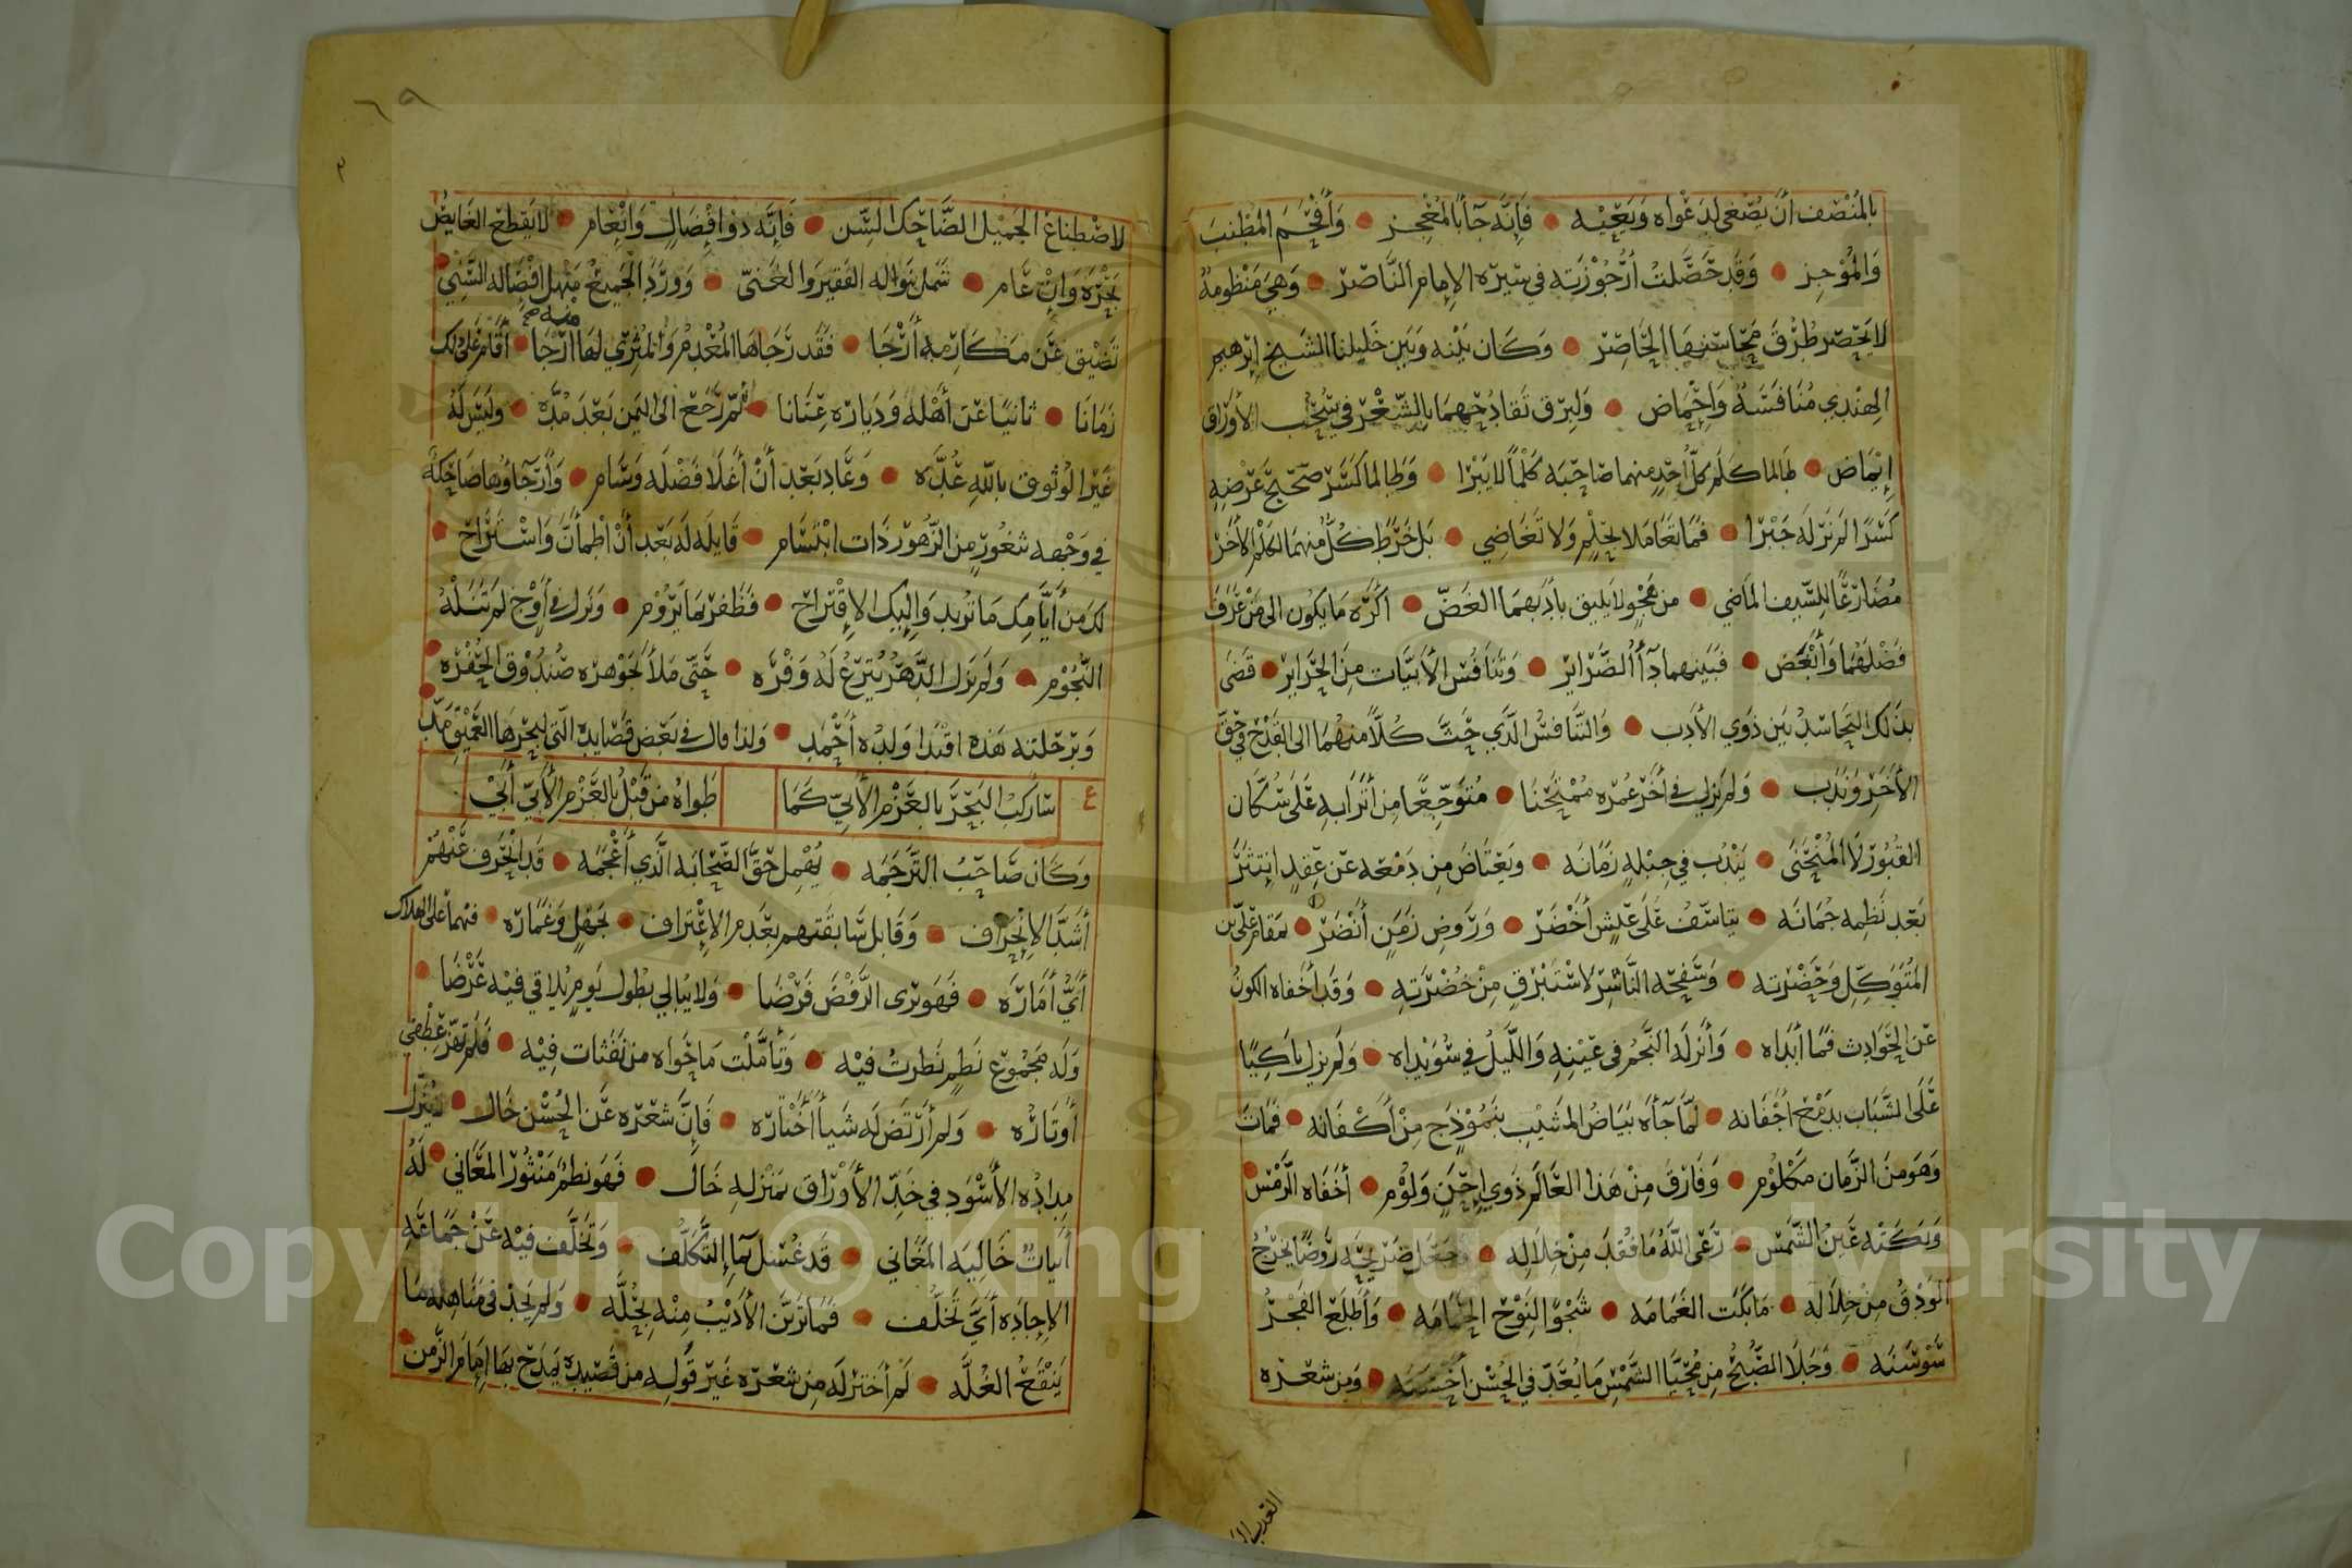 بالمُنْصِف أنْ يُصْغي لِدَعْواه وَيَعِيْه • فَإِنَّه جَآءَ بالمُعْجِز • وَأَفْحَمَ المُطْنِبَ
وَالمُوْجِز • وَقَد حَصَّلتُ أُرْجُوْزَتَه في سِيْرَة الإمام النَّاصِر • وَهِيَ مَنْظومةٌ
لا يَحْصر طُرُقَ مَحَاسنها الحَاصِر • وَكَان بَيْنه وَبَين خَليلنا الشَيخ إبرهيم
الهِندي مُنَافَسَةٌ وَإحْمَاض • وَلِبرْق تَقادُحِهمَا بِالشّعْر في سُحُب الأوراق
إِيْمَاض • طَالما كَلَم كلُّ أحَدٍ منهما صَاحِبَه كَلْمًا لا يَبْرَا • وَطَالما كَسَّر صَحيْحَ عَرْضِهِ
كَسْرًا لم نَرَ لَه جَبْرَا • فمَا تعَامَلا بِحِلْمٍ وَلا تَغَاضِي • بَل خَرَطَ كُلٌّ منهمَا لكَلْم الآخَر
مُضَارِعًا لِلسَّيف المَاضي • من هَجْوٍ لا يَليق بأدَبهمَا الغَضّ • أكرَه مَا يكُون الى مَن عَرَفَ
فَضْلَهُمَا وَأَبْغَض • فَبَينهما دَآءُ الضَّرَاير • وَتَنَافُس الأَبيَّات مِنَ الحَرَاير • قَضَى
بذَلك التَحاسُد بَين ذَوي الأدَب • وَالتَّنافُس الَّذي حَثَّ كُلًّا منهُمَا الى القَدْح في حَقّ
الآخَر وَنَدَب • وَلم يَزل في أخر عُمْره مُمْتَحَنَا • مُتَوجِّعًا مِن أَتْرَابِهِ عَلَى سُكَّان
القبُوْر لَا المُنْحَنَى • يَنْدُب في جِبْلِه زَمَانَه • وَيَعْتَاضُ مِن دَمْعه عَن عِقدٍ انتثَرَ
بَعْد نَظمِه جُمَانَه • يتاسَّفُ عَلَى عَيشٍ أخْضَر • وَرَوضِ زَمَنٍ أنْضَر • بمَقام عَلي بن
المُتَوَكِّلِ وَحَضْرته • وَسَفحِه النَّاشِر لاسْتَبْرَقٍ مِنْ خُضْرَتِه • وَقَد أخفاه الكونُ
عَن الحَوَادِث فَمَا أبدَاه • وَأَنزلَه النَّجْم في عَيْنِهِ وَاللَّيلُ في سُوَيْدَاه • وَلم يزل باكِيًا
عَلَى الشَّبَاب بدَمْع أجْفَانه • لمَّا جَآءَه بَيَاضُ المَشيْب بنَمُوْذَجٍ مِنْ أكْفَانه • فمَاتَ
وَهوَ مِنَ الزَّمان مَكلُوْم • وَفَارَقَ مِنْ هَذا العَالَم ذَوي إحَنٍ وَلُوْم • أخَفَاه الرَّمْسُ
وَبَكَتْه عَينُ الشَّمس • رَعَى اللَّهُ مَا فُقدَ مِنْ خِلاله • وَجَعَل ضَرِيْحَه رَوْضًا يَخرُجُ
الوَدْقُ مِنْ خِلَاله • مَا بكَت الغَمَامَه • شَجْوًا لنَوْح الحَمَامَه • وَأَطلَعَ الفَجْرُ
سَوْسَنَه • وَجَلَا الصُّبْحُ مِن مُحَيَّا الشَّمْسِ مَا يُعَدّ في الحُسْن أحْسَنَه • وَمِن شعْره
العذب
٦٩
٣
لاصْطِناع الجَمِيْل الضَّاحِك السِّن • فَإنَّه ذو إفْضَالٍ وَإنْعَام • لا يَقطع الغَايصُ
بَحْرَه وَإنْ عَام • شَمل نوَاله الفَقيرَ وَالغَنيّ • وَوَرَدَ الجَميعُ مَنْهل افْضَاله السَّنِيّ •
تَضيْق عَن مَكَارمه أرْجَا • فقَد رَجَاهَا المُعْدِمُ وَالمُثْري لهَا ارتجا • أقَام عَلى ذلك منه صح
زَمَانا • ثانيًا عَن أهْله وَدِيَاره عِنَانا • ثم رَجَع الى اليَمن بَعْدَ مُدَّه • وَليسَ لَهُ
غَيْر الوُثوق بالله عُدَّه • وَعَادِ بَعْدَ أنْ أغلَا فَضْلَه وَسَام • وَأرجَاؤها ضَاحِكَةٌ
في وَجْهه بثغُورٍ مِن الزُّهوْر ذَات ابْتسَام • قَايلَه لَه بَعد أنْ اطْمأنّ وَاسْتَرَاح •
لكَ مِنْ أيَّامِك مَا تُريد وَإليك الاقْتراح • فَظَفر بمَا يَرُوْم • وَنَزل في أوْجٍ لم تَنَلْهُ
النُّجُوْم • وَلم يَزل الدَّهْرُ يُترِعُ لَهُ وَفْرَه • حَتَّى مَلأ بجَوْهره صُنْدُوْق الحُفْرَه •
وَبرحْلته هَذه اقتدَا وَلدُه أحْمَد • وَلذا قال في بَعْض قَصَايده الّتي لبَحْرهَا العَمِيْقِ مَدّ •
ع سَاركبُ البَحْرَ بالعَزْم الأبيّ كَمَا طَواهُ من قَبْلُ بالعَزْم الأبيّ أَبيْ
وَكَان صَاحِبُ التَّرجَمَه • يُهْمِل حَقَّ الصَّحَابَه الَّذي أعْجَمَه • قَد انْحَرفَ عَنْهُمْ
أشَدَّ الانْحِرَاف • وَقَابل سَابقَتهم بعَدم الاعْتِراف • لجَهْلٍ وَغَمَارَه • فيهما عَلى الهلَاك
أيُّ أمَارَه • فَهوَ يَرى الرَّفضَ فَرْضَا • وَلا يُبَالي بطُول يَومٍ يُلاقي فيْه عَرْضَا •
وَلَه مَجمُوْع نَظمٍ نَظرتُ فيْه • وَتأمَّلْت مَا حَواه من نَفَثات فِيْه • فَلم تهزّ عِطْفي
أوْتَارُه • وَلم أرْتَضِ لَه شَيأً أخْتَارُه • فَإنَّ شعْرَه عَن الحُسْن خَال • يُنَزَّل
مِدَادُه الأسْوَدِ في خَدِّ الأوْرَاق بمَنْزله خَال • فَهوَ نظمٌ مَنْثُوْر المَعَاني • لَهُ
أبياتٌ خَاليَه المغَاني • قَد غُسْل بمَاءِ التَّكلُّف • وَتَخلَّف فيْه عَنْ جَمَاعَةِ
الإجَادِه أيَّ تَخَلُّف • فَمَا تَزيَّن الأديْبُ مِنْه بحُلَّه • وَلم يَجدْ في مَنَاهِله مَا
يَنْقَعُ الغُلَّه • لَمْ أخترْ لَه مِن شعْره غَيْر قَوله من قَصيدِه يَمدَح بهَا إمَامَ الزَّمن •
Copyright © King Saud University